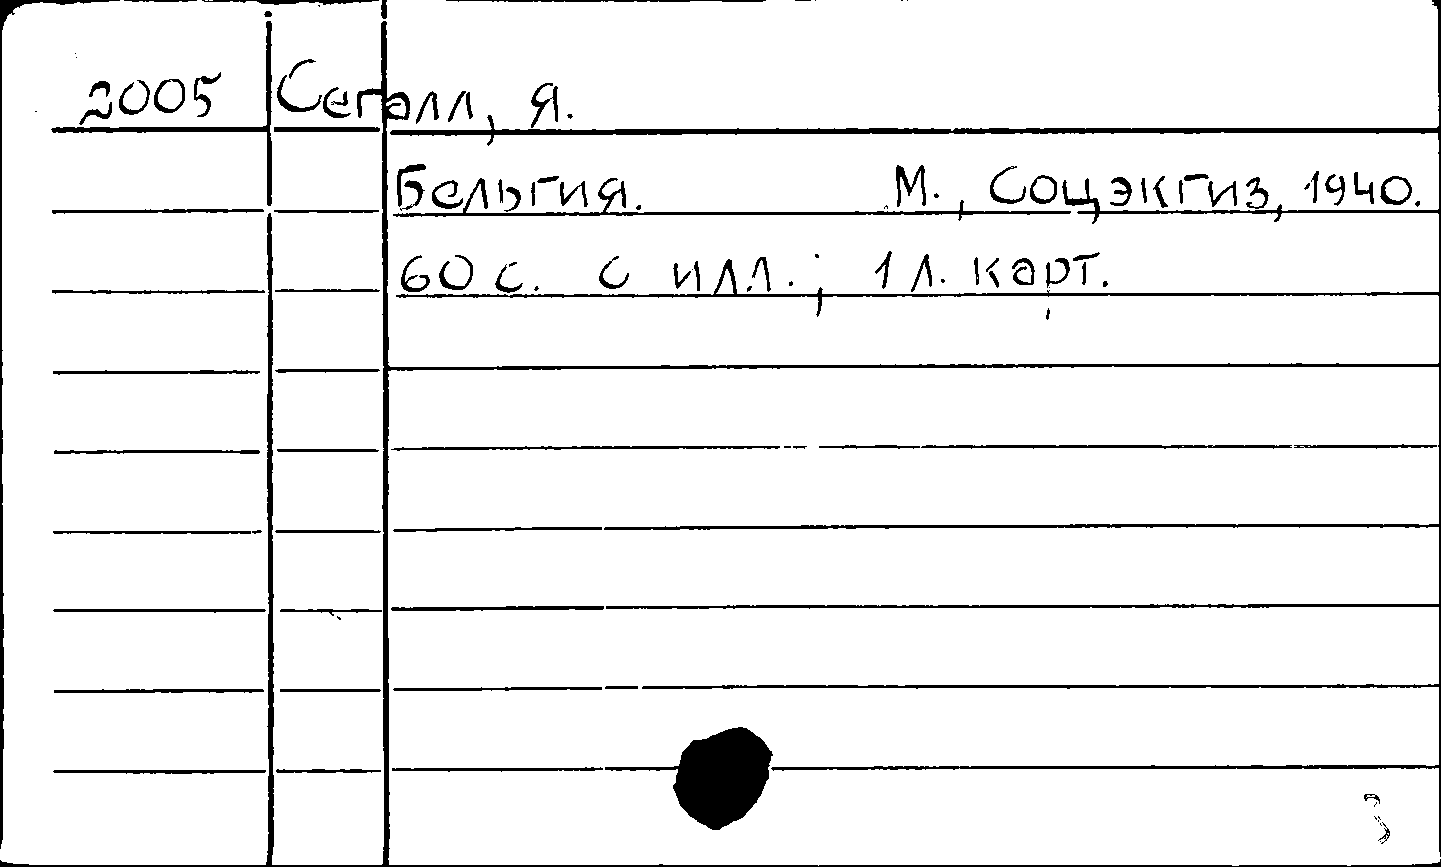 2005 Сегалл, Я.
Бельгия. М., Соцэкгиз, 1940.
60 с. с илл.; 1 л. карт.